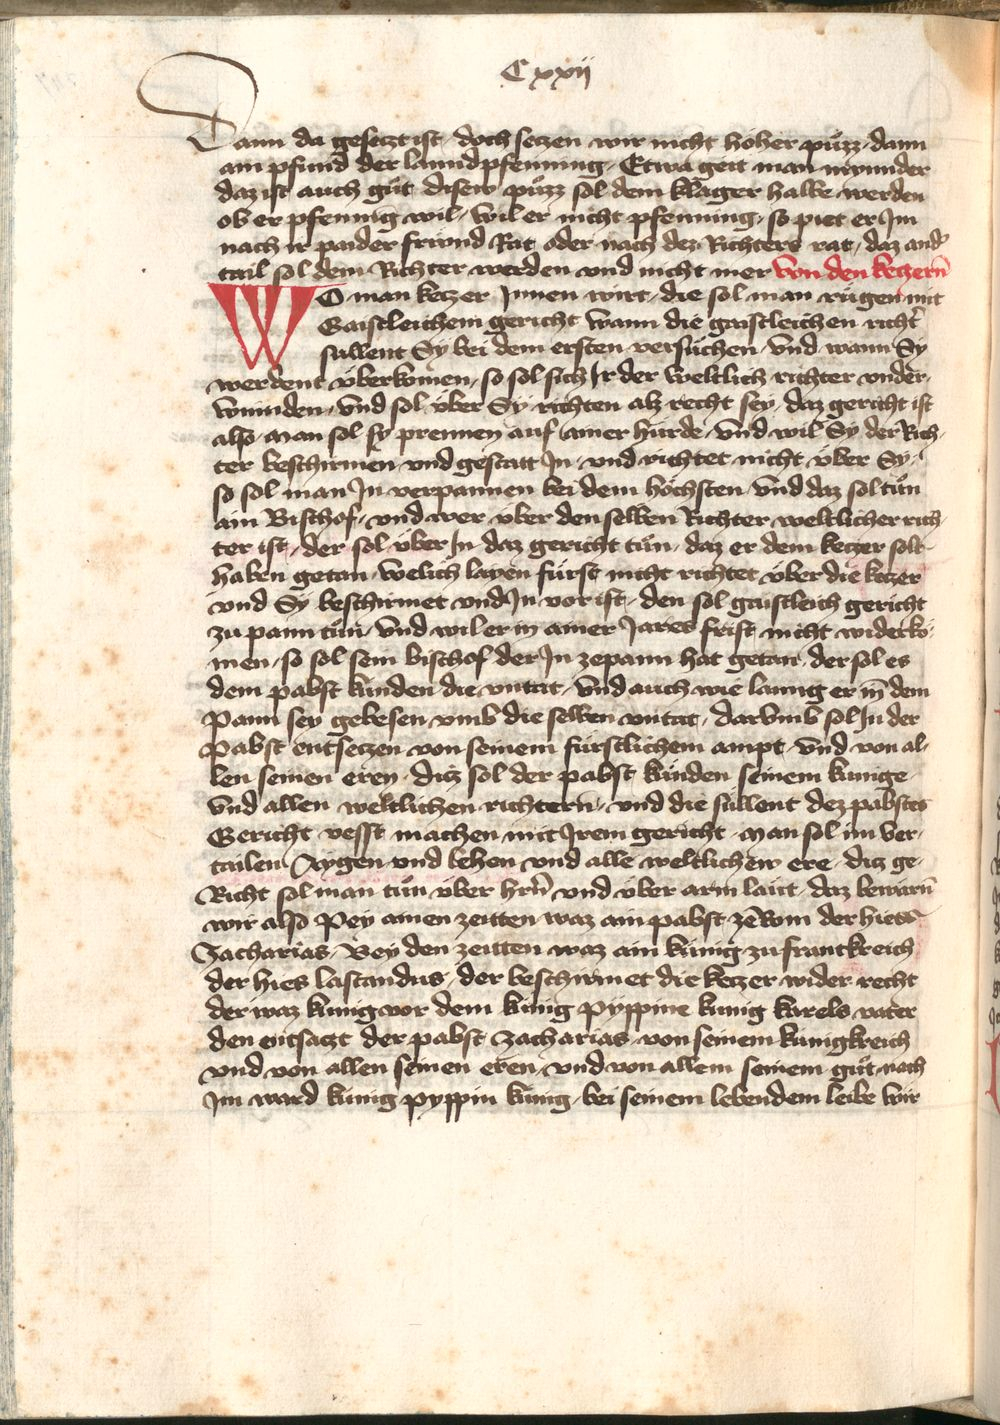 C xxii
Dann da gesetzt ist / doch setzen wir nicht höher püzz / dann
am pfund der lanndpfenning / Etwa geit man mynnder
daz ist auch güt disew püzz sol dem klager halbe werden
ob er pfennīg wil / wil er nicht pfenning / so piet er Jm
nach ir paider frewnd Rat oder nach dez Richters rat / daz and'
tail sol dem Richter werden vnd nicht mer von den ketzern̄
WO man ketzer Jnnen wirt / die sol man rügen mit
Gaistleichem gericht wann die gaistleichen richt'
sullent Sy bei dem ersten versüchen vnd wann Sy
werdent überkomen / so sol sich Jr der weltlich richter vnder/
wninden / vnd sol über Sy richten alz recht sey / daz gericht ist
also / man sol sy prennen auf ainer hurde / vnd wil Sy der Rich/
ter beschirmen vnd gestatt Jn / vnd richtet nicht über Sy /
so sol man Jn verpannen bei dem höchsten vnd daz sol tün
ain Bischof / vnd wer über denselben Richter weltlicher rich/
ter ist / der sol über Jn daz gericht tün / daz er dem ketzer solt
haben getan / welich layen fürst nicht richtet über die ketzer
vnd Sy beschirmet vnd Jn vor ist / den sol gaistleich gericht
zu pann tün / vnd wil er in ainer Jares frist nicht widerko/
men / so sol sein bischof der Jn ze pann hat getan der sol es
dem pabst kunden die vntat / vnd auch wie lanng er in̄ dem
Pann sey gebesen vmb die selben vntat / darvmb sol Jn der
Pabst entsetzen von seinem fürstlichem ampt vnd von al/
len seinen eren / ditz sol der pabst künden seinem kunige
vnd allen weltlichen richtern̄ / vnd die sullent dez pabstes
Gericht vesst machen mit Jrem gericht / man sol im ver/
tailen Aygen vnd lehen vnd alle weltlichew ere / ditz ge/
Richt sol man tün über hrn̄ vnd über arm läut / daz bewarn̄
wir also Pey ainen zeitten waz ain pabst ze Rom der hiess
Zacharias / Bey den zeitten waz ain künig zu frankreich
der hies lastandus / der beschirmet die ketzer wider recht
der waz kunig vor dem künig pyppine kunig karels vater
den entsatzt der pabst zacharias von seinem kunigkreich
vnd von allen seinen eren / vnd von allem seinem güt / nach
Jm ward künig pyppin kunig / bei seinem lebendem leibe wir